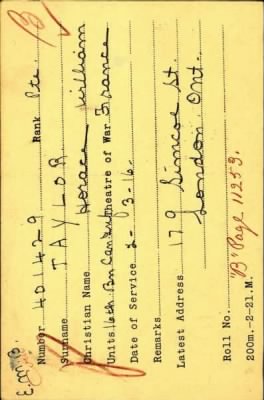 E.M.B. B
Number 401429 Rank Pte.
Surname TAYLOR.
Christian Name Horace William
Units 16th Bn Can Inf Theatre of War France
Date of Service 2-3-16.
Remarks
Latest Address 179 Simcoe St.
London Ont.
Roll No. "B" Page 11259.
200m.-2-21.M.